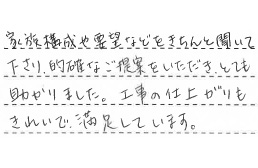 家族構成や要望などをきちんと聞いて
下さり、的確なご提案をいただき、とても
助かりました。工事の仕上がりも
きれいで、満足しています。